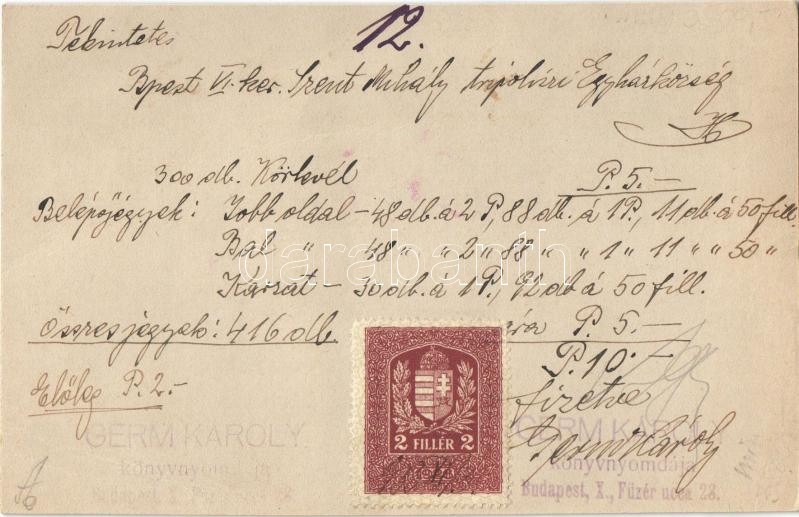 12.
Tekintetes
Bpest VI. ker. Szent Mihály tripolisi Egyházközség
300 db. Körlevél P. 5.—
Belépőjegyek: Jobb oldal — 48 db. á 2 P, 88 db. á 1 P., 11 db. á 50 fill.
Bal " 48 " " 2 " 88 " " 1 " 11 " " 50 "
Karzat — 30 db. á 1 P., 92 db á 50 fill.
Összes jegyek: 416 db. ára P. 5.—
P. 10.—
Előleg P. 2.-
fizetve
Germ Károly
2 FILLÉR 2
GERM KÁROLY
könyvnyomdája
GERM KÁROLY
könyvnyomdája
Budapest, X., Füzér ucca 28.
darabanth